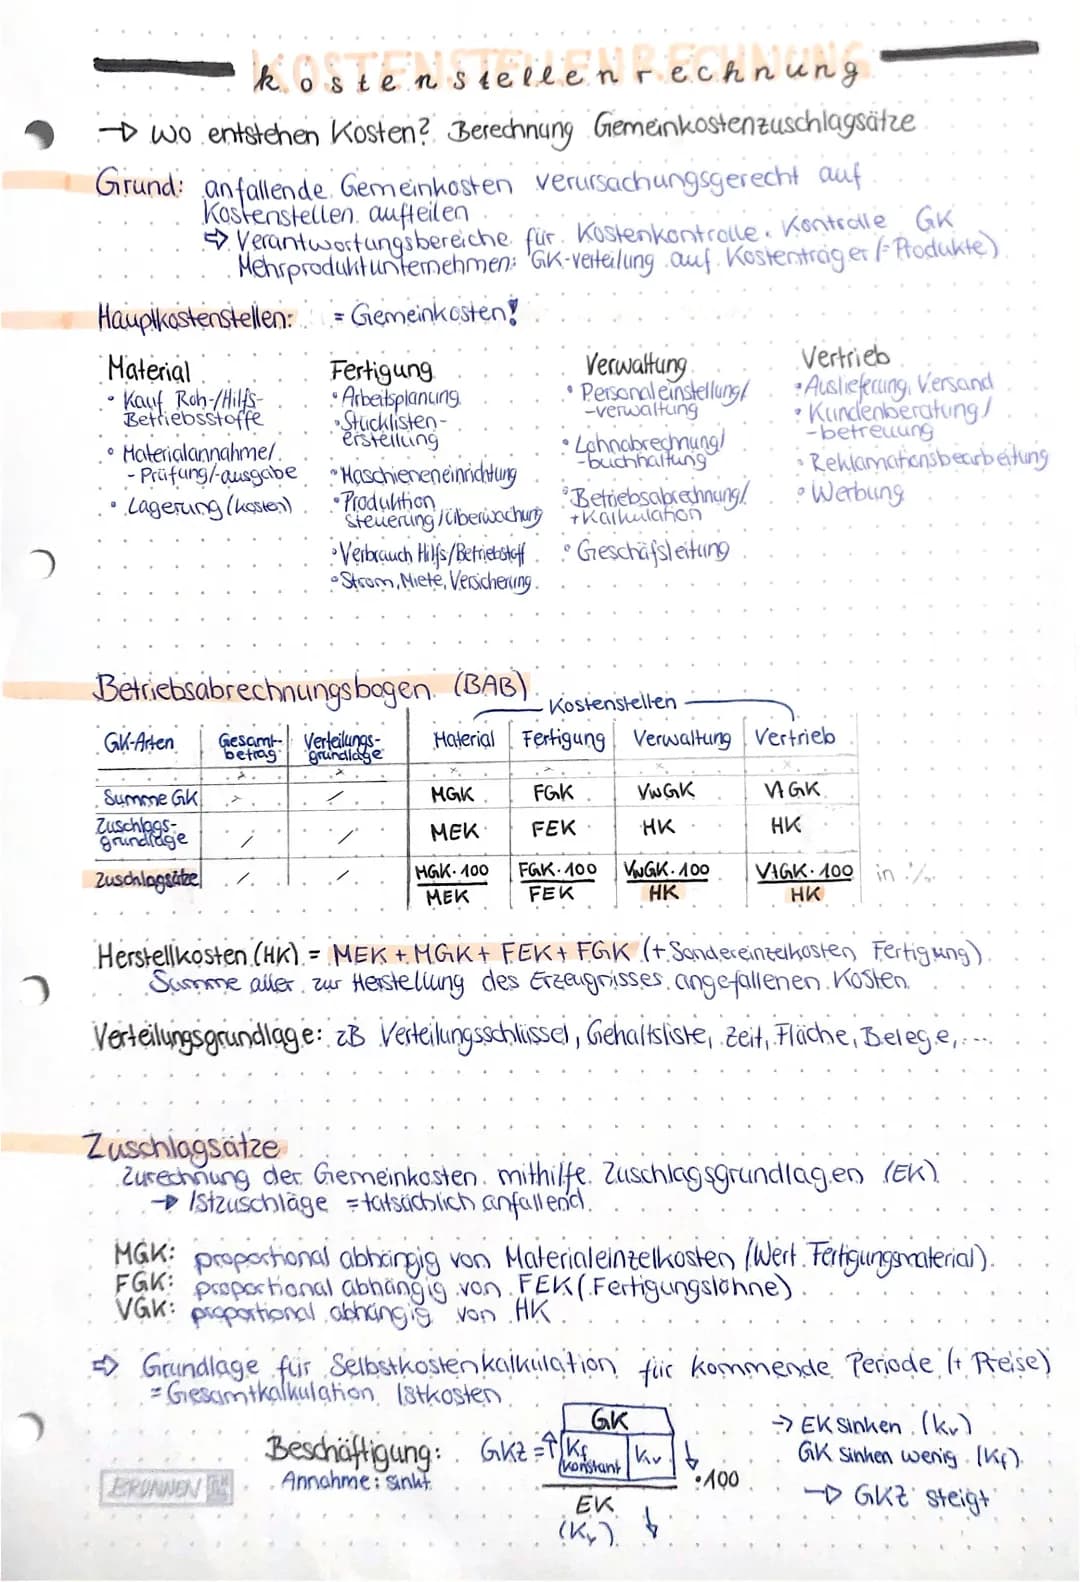 KOSTENSTELLENRECHNUNG
kostenstellenrechnung
→ Wo entstehen Kosten? Berechnung Gemeinkostenzuschlagsätze
Grund: anfallende Gemeinkosten verursachungsgerecht auf
Kostenstellen aufteilen
⇒ Verantwortungsbereiche für Kostenkontrolle. Kontrolle GK
Mehrproduktunternehmen: GK-verteilung auf Kostenträger (=Produkte)
Hauptkostenstellen: = Gemeinkosten!
Material
• Kauf Roh-/Hilfs-
Betriebsstoffe
• Materialannahme/
-Prüfung/-ausgabe
• Lagerung (kosten)
Fertigung
• Arbeitsplanung
• Stücklisten-
erstellung
• Maschieneneinrichtung
• Produktion
steuerung/überwachung
• Verbrauch Hilfs/Betriebstoff
• Strom, Miete, Versicherung
Verwaltung
• Personaleinstellung/
-verwaltung
• Lohnabrechnung/
-buchhaltung
• Betriebsabrechnung/
+Kalkulation
• Geschäfsleitung
Vertrieb
• Auslieferung, Versand
• Kundenberatung/
-betreuung
• Reklamationsbearbeitung
• Werbung
Betriebsabrechnungsbogen (BAB)
Kostenstellen
GK-Arten Gesamt-betrag Verteilungs-grundlage Material Fertigung Verwaltung Vertrieb
Summe GK / MGK FGK VwGK VtGK
Zuschlags-grundlage / / MEK FEK HK HK
Zuschlagsätze / / MGK·100 FGK·100 VwGK·100 VtGK·100 in %
MEK FEK HK HK
Herstellkosten (HK) = MEK + MGK + FEK + FGK (+ Sondereinzelkosten Fertigung)
Summe aller zur Herstellung des Erzeugnisses angefallenen Kosten
Verteilungsgrundlage: zB Verteilungsschlüssel, Gehaltsliste, Zeit, Fläche, Belege,...
Zuschlagsätze
Zurechnung der Gemeinkosten mithilfe Zuschlagsgrundlagen (EK)
→ Istzuschläge = tatsächlich anfallend
MGK: proportional abhängig von Materialeinzelkosten (Wert Fertigungsmaterial)
FGK: proportional abhängig von FEK (Fertigungslöhne)
VGK: proportional abhängig von HK
⇒ Grundlage für Selbstkostenkalkulation für kommende Periode (+ Preise)
= Gesamtkalkulation Istkosten
Beschäftigung:
Annahme: sinkt
GK
GKZ = ↑ Kf konstant Kv ↓ ·100
EK ↓
(Kv)
→ EK sinken (kv)
GK sinken wenig (Kf)
→ GKZ steigt
BRUNNEN